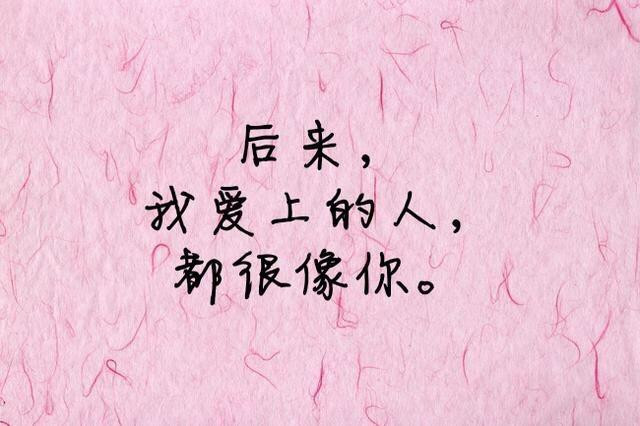 后来，
我爱上的人，
都很像你。